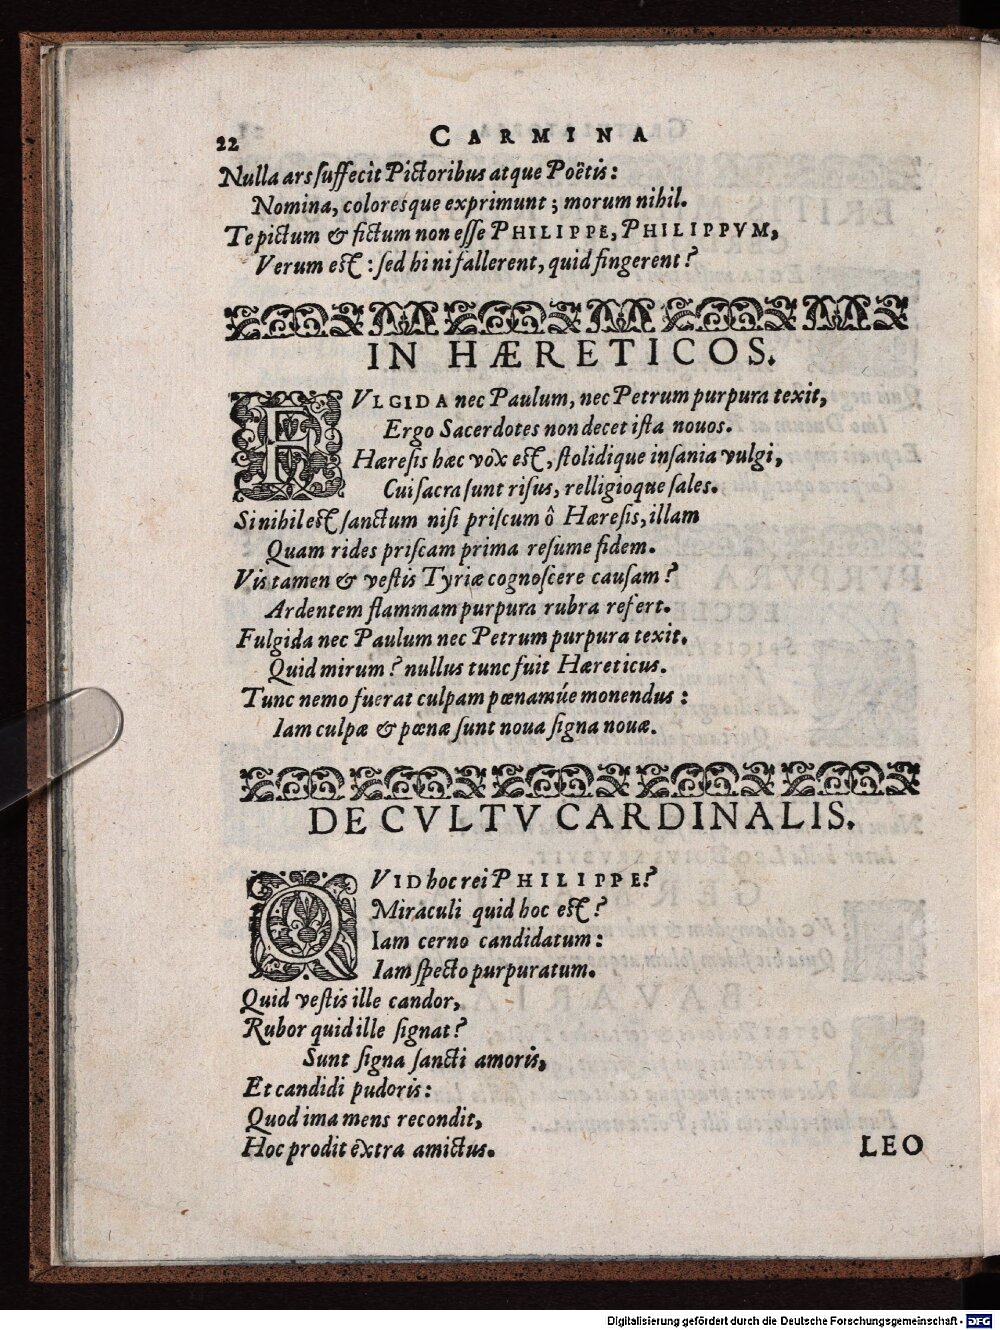 22 CARMINA
Nulla ars ſuffecit Pictoribus atque Poëtis:
Nomina, coloresque exprimunt; morum nihil.
Te pictum & fictum non eſſe PHILIPPE, PHILIPPVM,
Verum eſt: ſed hi ni fallerent, quid fingerent?
IN HÆRETICOS.
FVLGIDA nec Paulum, nec Petrum purpura texit,
Ergo Sacerdotes non decet iſta nouos.
Hæreſis hæc vox eſt, ſtolidique inſania vulgi,
Cui ſacra ſunt riſus, relligioque ſales.
Si nihil eſt ſanctum niſi priſcum ô Hæreſis, illam
Quam rides priſcam prima reſume fidem.
Vis tamen & veſtis Tyriæ cognoſcere cauſam?
Ardentem flammam purpura rubra refert.
Fulgida nec Paulum nec Petrum purpura texit.
Quid mirum? nullus tunc fuit Hæreticus.
Tunc nemo fuerat culpam pœnamúe monendus:
Iam culpæ & pœnæ ſunt noua ſigna nouæ.
DE CVLTV CARDINALIS.
QVID hoc rei PHILIPPE?
Miraculi quid hoc eſt?
Iam cerno candidatum:
Iam ſpecto purpuratum.
Quid veſtis ille candor,
Rubor quid ille ſignat?
Sunt ſigna ſancti amoris,
Et candidi pudoris:
Quod ima mens recondit,
Hoc prodit extra amictus.
LEO
Digitalisierung gefördert durch die Deutsche Forschungsgemeinschaft - DFG